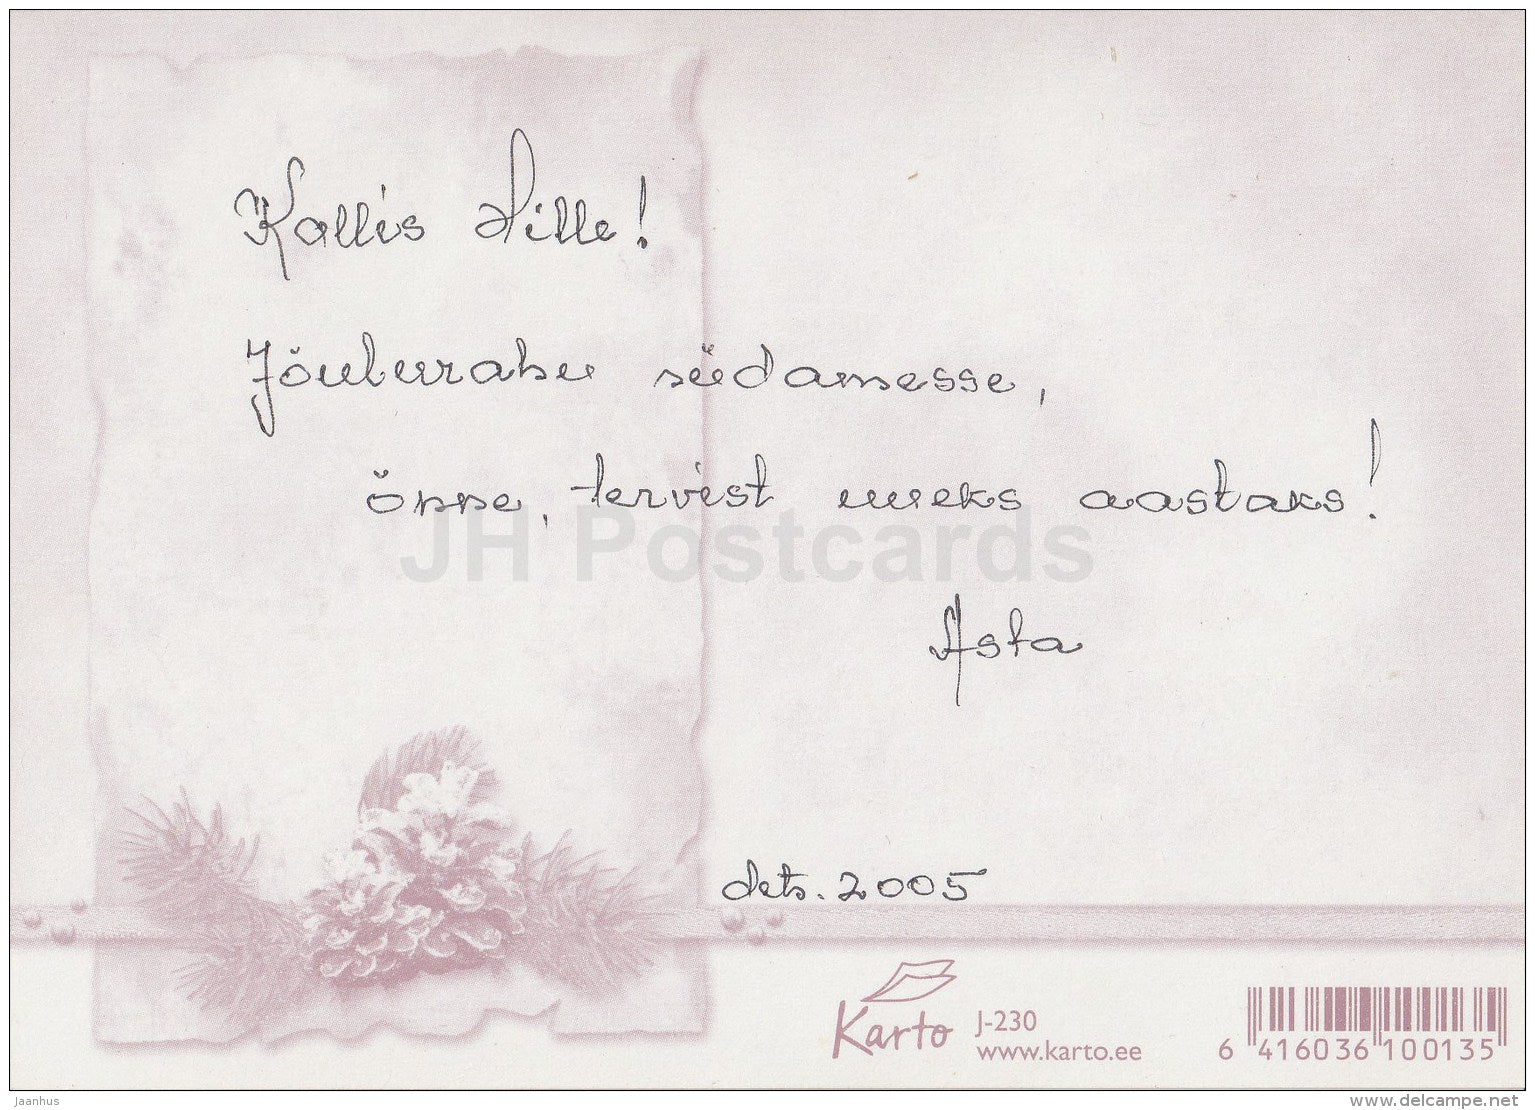 Kallis Hille!
Jõulurahu südamesse,
õnne, tervist uueks aastaks!
JH Postcards
Asta
dets. 2005
Karto
J-230
www.karto.ee
6 416036 100135
Jaanhus
www.delcampe.net